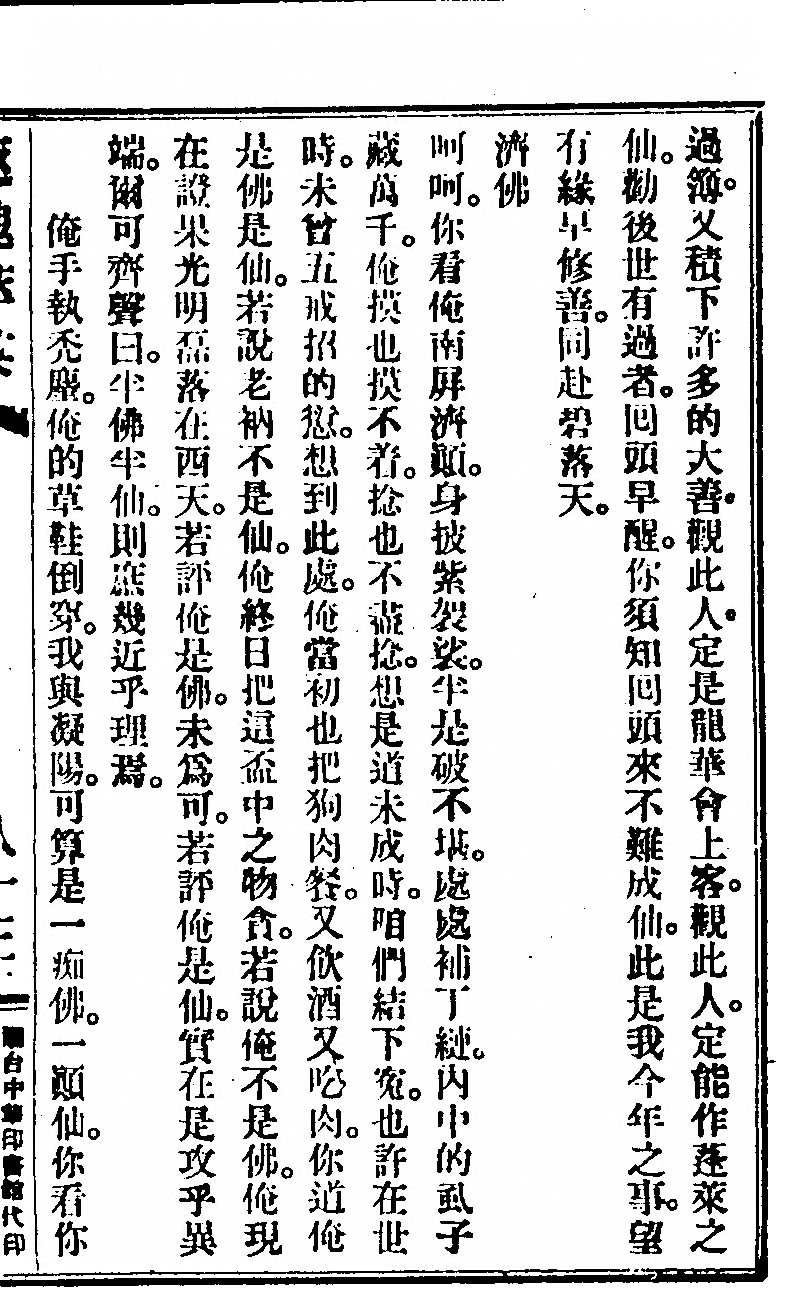 過簿。又積下許多的大善。觀此人。定是龍華會上客。觀此人。定能作蓬萊之
仙。勸後世有過者。回頭早醒。你須知回頭來不難成仙。此是我今年之事。望
有緣早修善。同赴碧落天。
濟佛
呵呵。你看俺南屏濟顚。身披紫袈裟。半是破不堪。處處補丁縺。內中的虱子
藏萬千。俺摸也摸不着。捻也不盡捻。想是道未成時。咱們結下寃。也許在世
時。未曾五戒招的愆。想到此處。俺當初也把狗肉餐。又飲酒又吃肉。你道俺
是佛是仙。若說老衲不是仙。俺終日把這盃中之物貪。若說俺不是佛。俺現
在證果光明磊落在西天。若評俺是佛。未爲可。若評俺是仙。實在是攻乎異
端。爾可齊聲曰。半佛半仙。則庶幾近乎理焉。
俺手執禿塵。俺的草鞋倒穿。我與凝陽。可算是一痴佛。一顚仙。你看你
台中華印書館代印